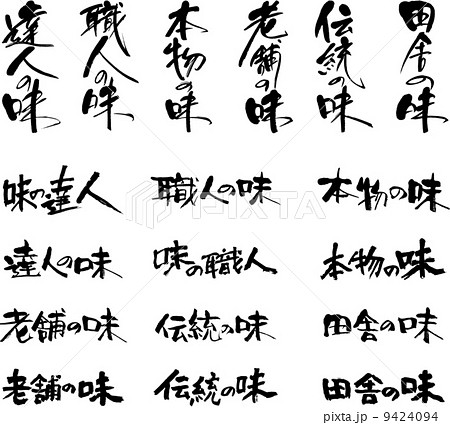 達人の味
職人の味
本物の味
老舗の味
伝統の味
田舎の味
味の達人 職人の味 本物の味
達人の味 味の職人 本物の味
老舗の味 伝統の味 田舎の味
老舗の味 伝統の味 田舎の味
PIXTA
pixta.jp - 9424094